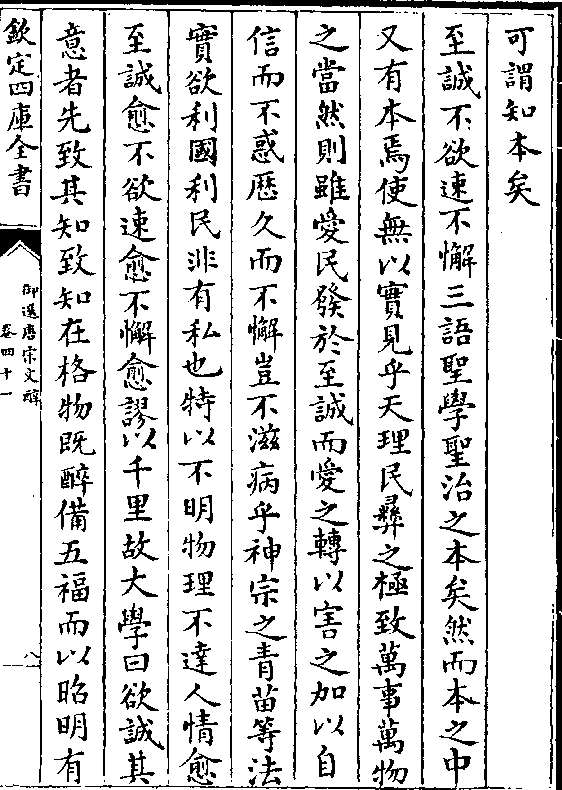 可謂知本矣
至誠不欲速不懈三語聖學聖治之本矣然而本之中
又有本焉使無以實見乎天理民彛之極致萬事萬物
之當然則雖愛民發於至誠而愛之轉以害之加以自
信而不惑歴久而不懈豈不滋病乎神宗之青苗等法
實欲利國利民非有私也特以不明物理不達人情愈
至誠愈不欲速愈不懈愈謬以千里故大學曰欲誠其
意者先致其知致知在格物既醉備五福而以昭明有
欽定四庫全書
御選唐宋文醇
卷四十一
八